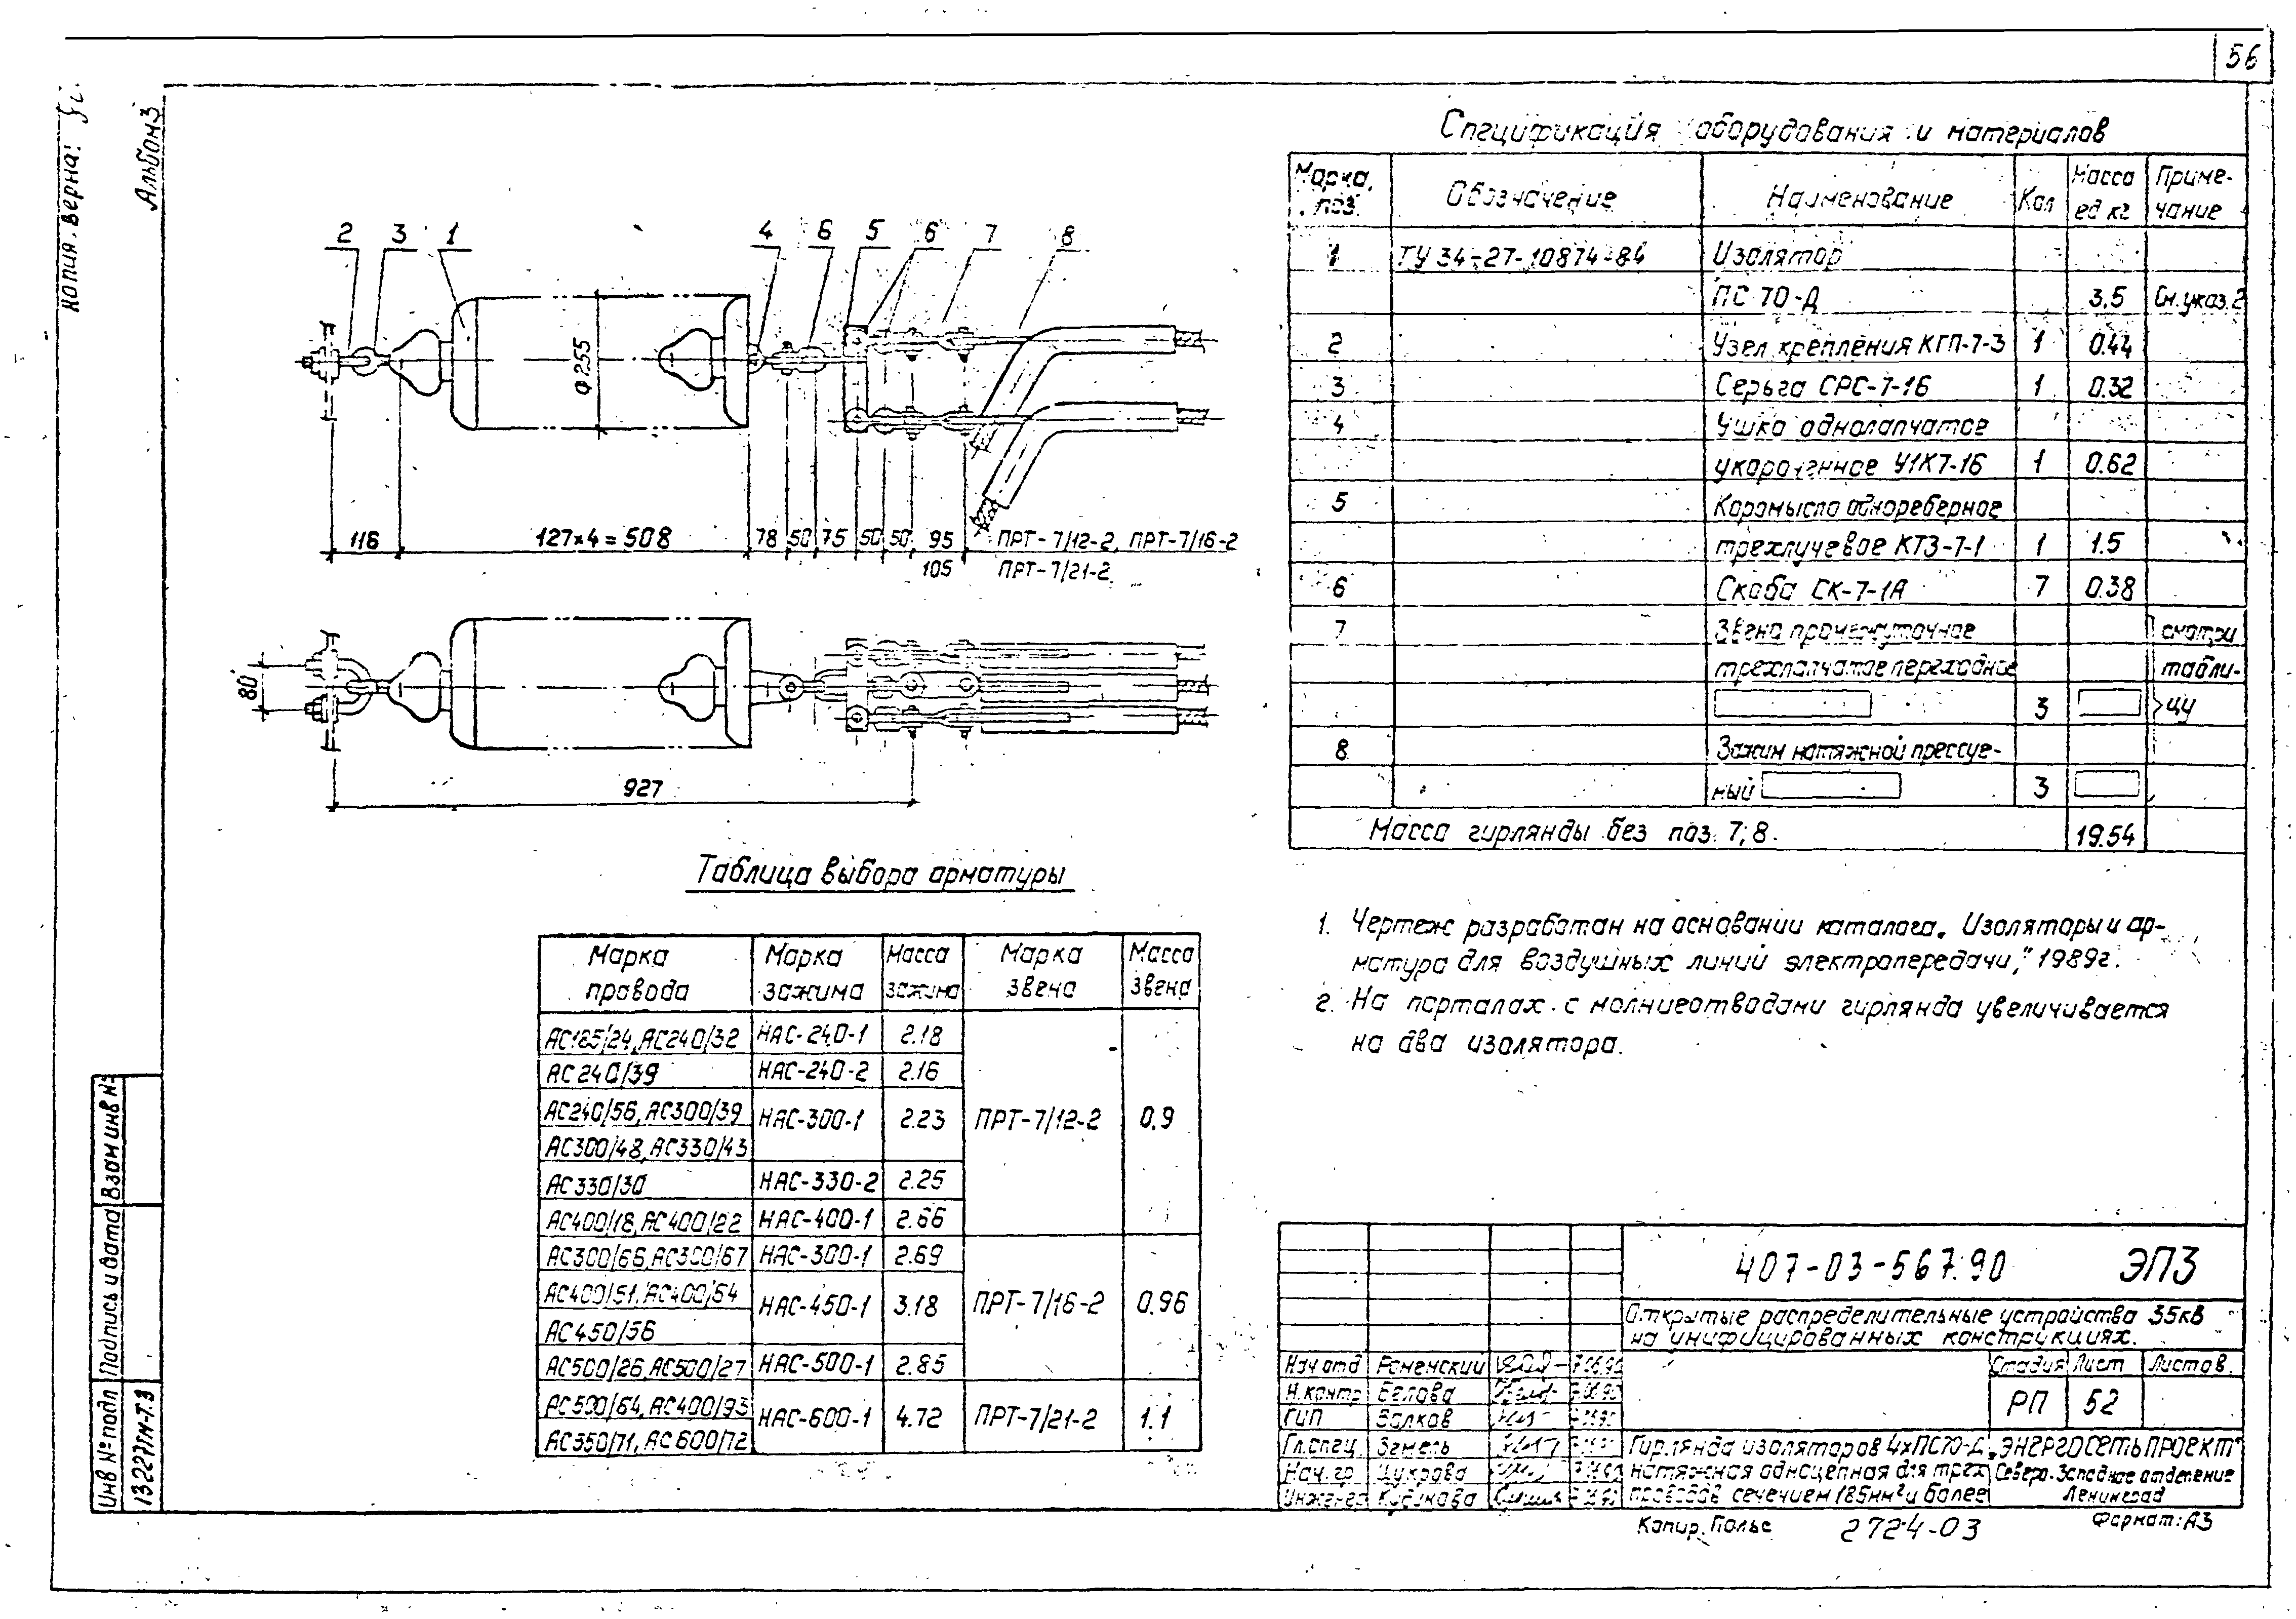 56
Копия верна:
Альбом 3
Спецификация оборудования и материалов
Марка, поз. Обозначение Наименование Кол Масса ед кг Приме-чание
1 ТУ 34-27-10874-84 Изолятор
ПС 70-Д 3.5 См. указ. 2
2 Узел крепления КГП-7-3 1 0.44
3 Серьга СРС-7-16 1 0.32
4 Ушко однолапчатое
укороченное У1К7-16 1 0.62
5 Коромысло однореберное
трехлучевое КТЗ-7-1 1 1.5
6 Скоба СК-7-1А 7 0.38
7 Звено промежуточное смотри
трехлапчатое переходное табли-
3 цу
8 Зажим натяжной прессуе-
мый 3
Масса гирлянды без поз. 7; 8. 19.54
2 3 1 4 6 5 6 7 8
ф255
116 127×4=508 78 50 75 50 50 95 ПРТ-7/12-2, ПРТ-7/16-2
105 ПРТ-7/21-2
80
927
Таблица выбора арматуры
Марка провода Марка зажима Масса зажима Марка звена Масса звена
АС185/24, АС240/32 НАС-240-1 2.18
АС240/39 НАС-240-2 2.16
АС240/56, АС300/39 НАС-300-1 2.23 ПРТ-7/12-2 0,9
АС300/48, АС330/43
АС330/30 НАС-330-2 2.25
АС400/18, АС400/22 НАС-400-1 2.66
АС300/66, АС300/67 НАС-300-1 2.69
АС400/51, АС400/64 НАС-450-1 3.18 ПРТ-7/16-2 0.96
АС450/56
АС500/26, АС500/27 НАС-500-1 2.85
АС500/64, АС400/93 НАС-600-1 4.72 ПРТ-7/21-2 1.1
АС550/71, АС600/72
1. Чертеж разработан на основании каталога „Изоляторы и ар-
матура для воздушных линий электропередачи," 1989г.
2. На порталах с молниеотводами гирлянда увеличивается
на два изолятора.
407-03-567.90 ЭП3
Открытые распределительные устройства 35кв
на унифицированных конструкциях.
Стадия Лист Листов.
РП 52
Нач отд Роменский
Н.контр Белова
ГИП Волков
Гл.спец. Земель
Нач. гр. Цукрова
Инженер Кубикова
Гирлянда изоляторов 4хПС70-Д
натяжная одноцепная для трех
проводов сечением 185мм² и более
„ЭНЕРГОСЕТЬПРОЕКТ"
Северо-Западное отделение
Ленинград
Копир. Полье 2724-03 Формат: А3
Взам инв №
Подпись и дата
Инв № подл 13227тм-Т.3